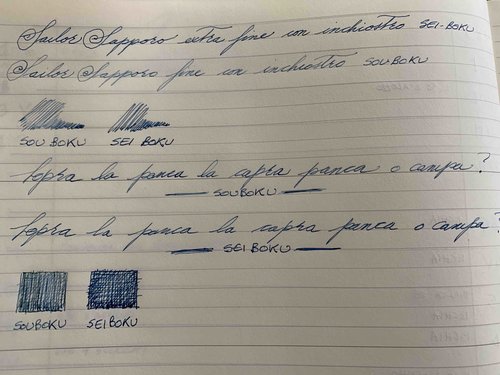 Sailor Sapporo extra fine con inchiostro SEI-BOKU
Sailor Sapporo fine con inchiostro SOU-BOKU
SOU BOKU SEI BOKU
Sopra la panca la capra panca o campa?
SOUBOKU
Sopra la panca la capra panca o campa?
SEI BOKU
SOUBOKU SEI BOKU